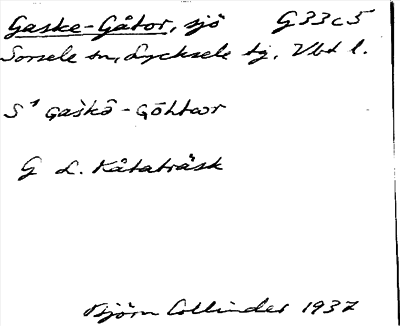 Gaske-Gåtor, sjö G33c5
Sorsele sn, Lycksele tg, Vbt l.
G L. Kåtaträsk
Björn Collinder 1937